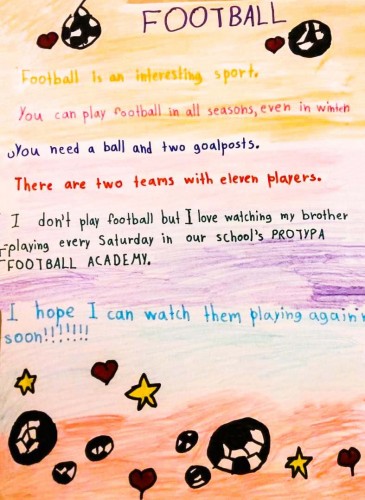 FOOTBALL
Football is an interesting sport.
You can play football in all seasons, even in winter
You need a ball and two goalposts.
There are two teams with eleven players.
I don't play football but I love watching my brother
playing every Saturday in our school's PROTYPA
FOOTBALL ACADEMY.
I hope I can watch them playing again
soon!!!!!!!